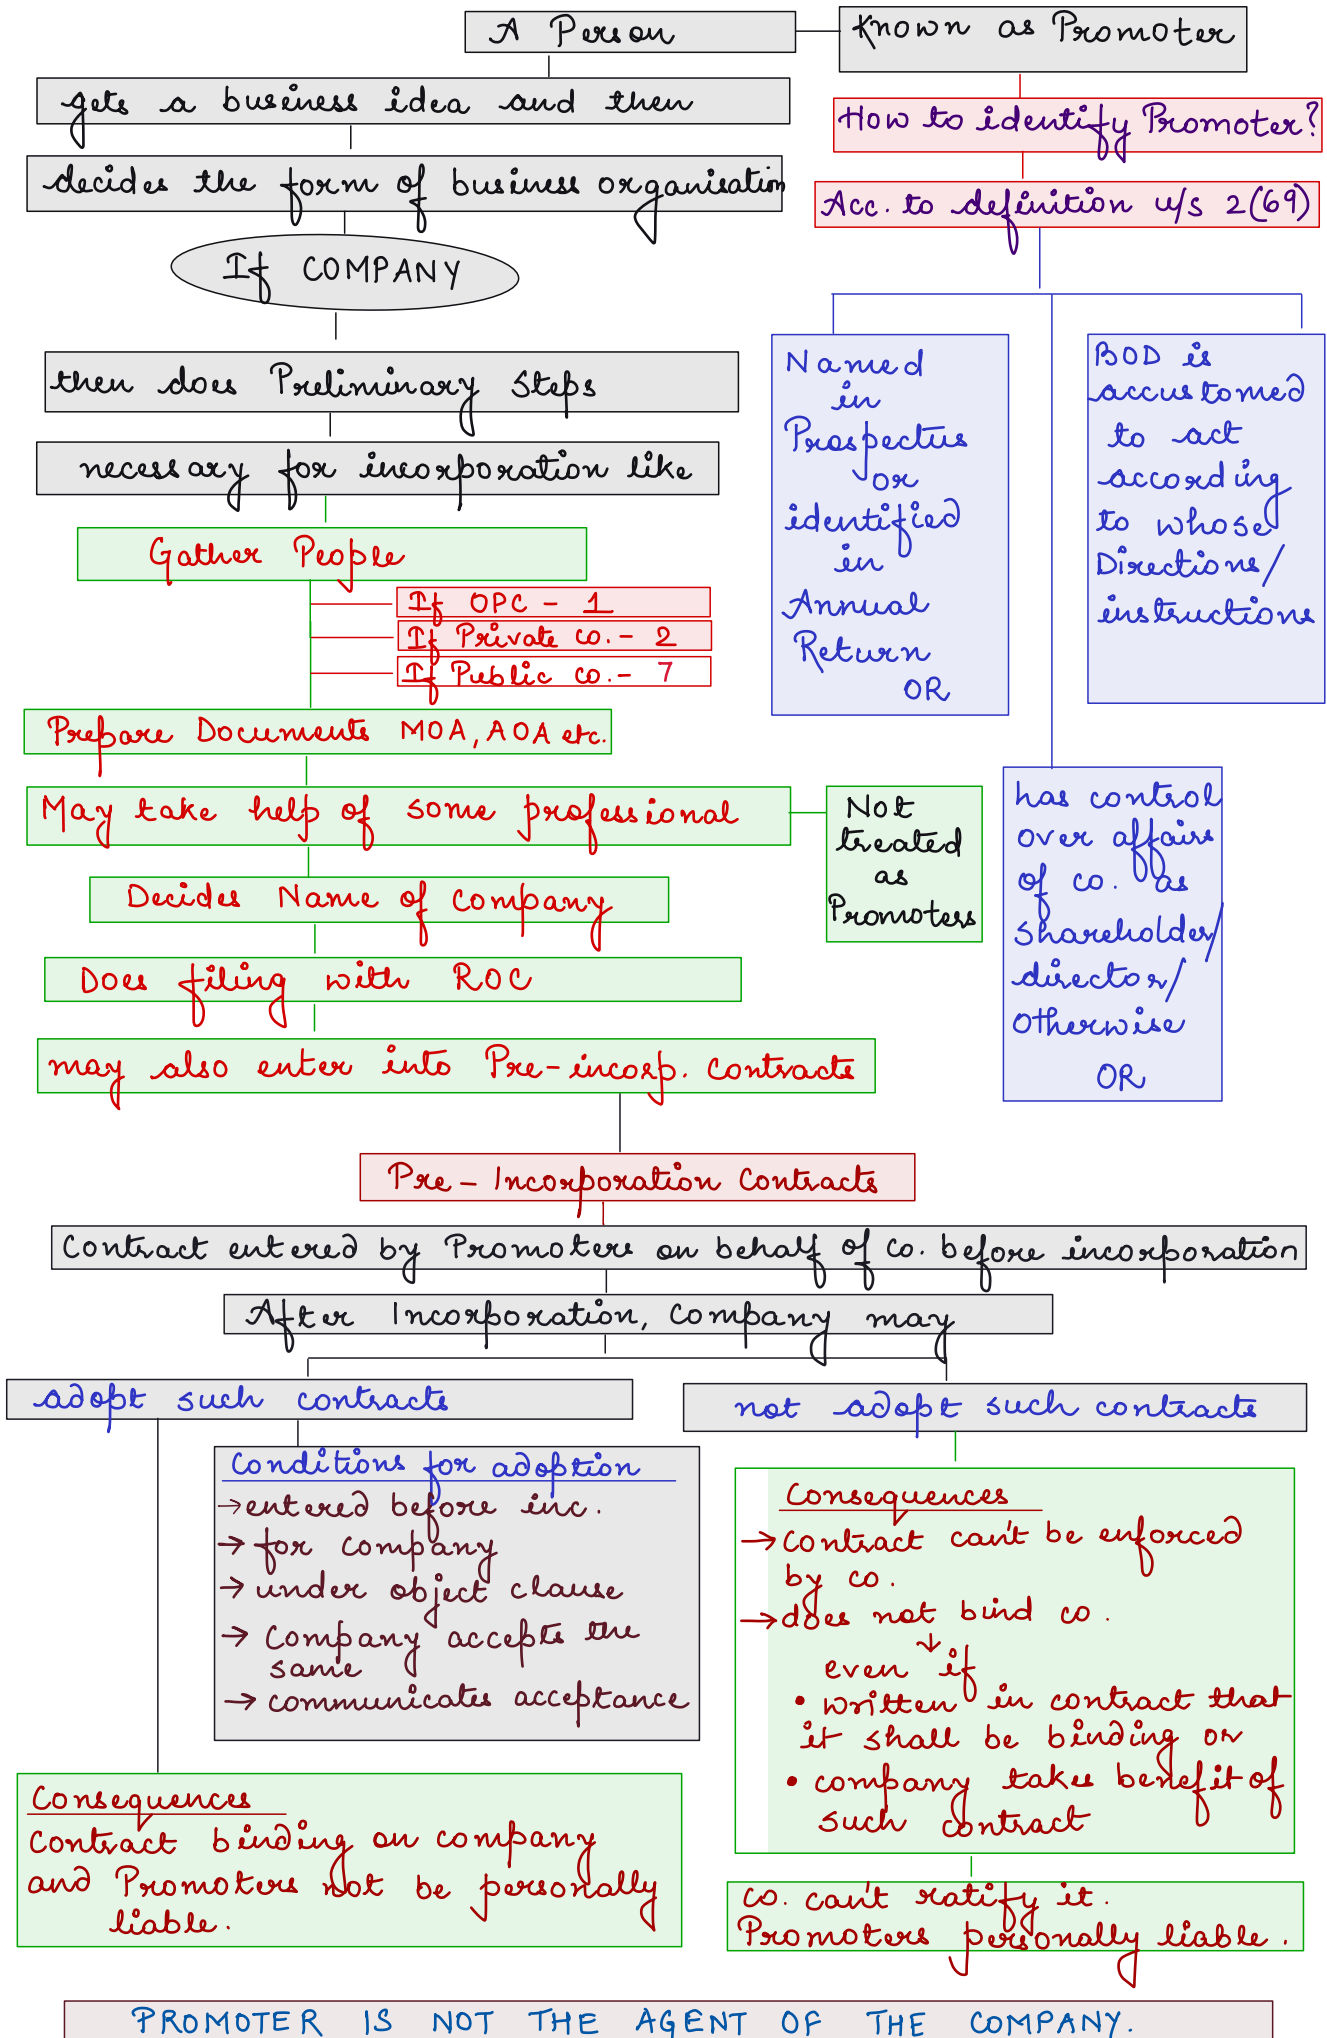 A Person
Known as Promoter
gets a business idea and then
decides the form of business organisation
If COMPANY
then does Preliminary Steps
necessary for incorporation like
Gather People
If OPC - 1
If Private co. - 2
If Public co. - 7
Prepare Documents MOA, AOA etc.
May take help of some professional
Not
treated
as
Promoters
Decides Name of company
Does filing with ROC
may also enter into Pre-incorp. Contracts
How to identify Promoter?
Acc. to definition u/s 2(69)
Named
in
Prospectus
or
identified
in
Annual
Return
OR
has control
over affairs
of co. as
shareholder/
director/
otherwise
OR
BOD is
accustomed
to act
according
to whose
Directions/
instructions
Pre - Incorporation Contracts
Contract entered by Promoters on behalf of co. before incorporation
After Incorporation, Company may
adopt such contracts
Conditions for adoption
→ entered before inc.
→ for company
→ under object clause
→ Company accepts the
same
→ communicates acceptance
Consequences
Contract binding on company
and Promoters not be personally
liable.
not adopt such contracts
Consequences
→ Contract can't be enforced
by co.
→ does not bind co.
↓
even if
• written in contract that
it shall be binding or
• company takes benefit of
such contract
co. can't ratify it.
Promoters personally liable.
PROMOTER IS NOT THE AGENT OF THE COMPANY.